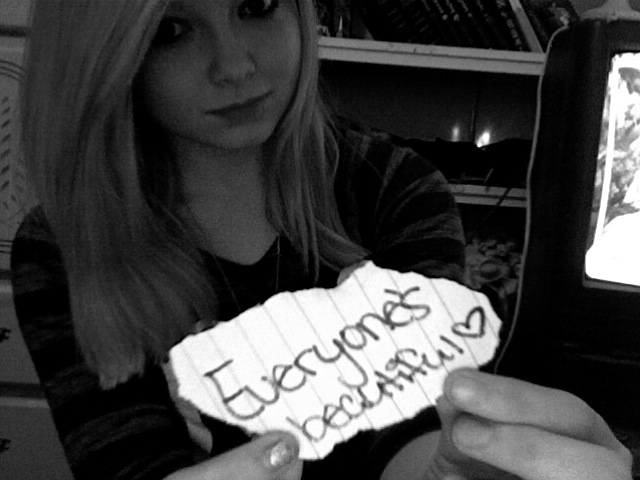 Everyone's
beautiful ♡